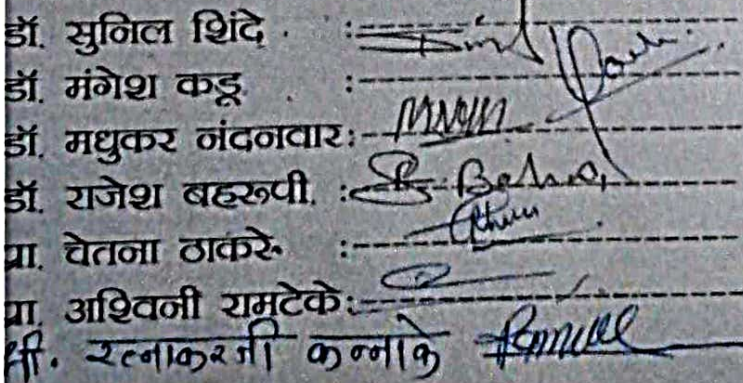 डॉ. सुनिल शिंदे :
डॉ. मंगेश कडू :
डॉ. मधुकर नंदनवार:
डॉ. राजेश बहरूपी. :
प्रा. चेतना ठाकरे :
प्रा. अश्विनी रामटेके:
श्री. रत्नाकरजी कन्नाके